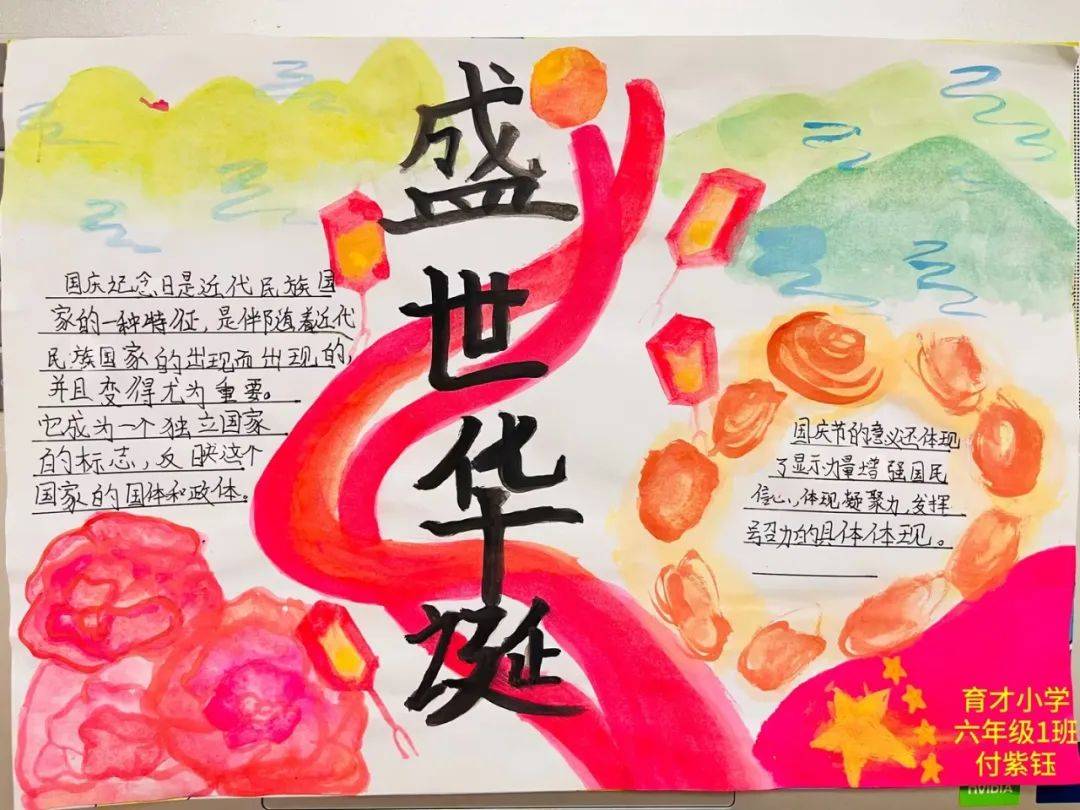 盛世华诞
国庆纪念日是近代民族国
家的一种特征，是伴随着近代
民族国家的出现而出现的，
并且变得尤为重要。
它成为一个独立国家
的标志，反映这个
国家的国体和政体。
国庆节的意义还体现
了显示力量增强国民
信心，体现凝聚力，发挥
号召力的具体体现。
育才小学
六年级1班
付紫钰
NVIDIA